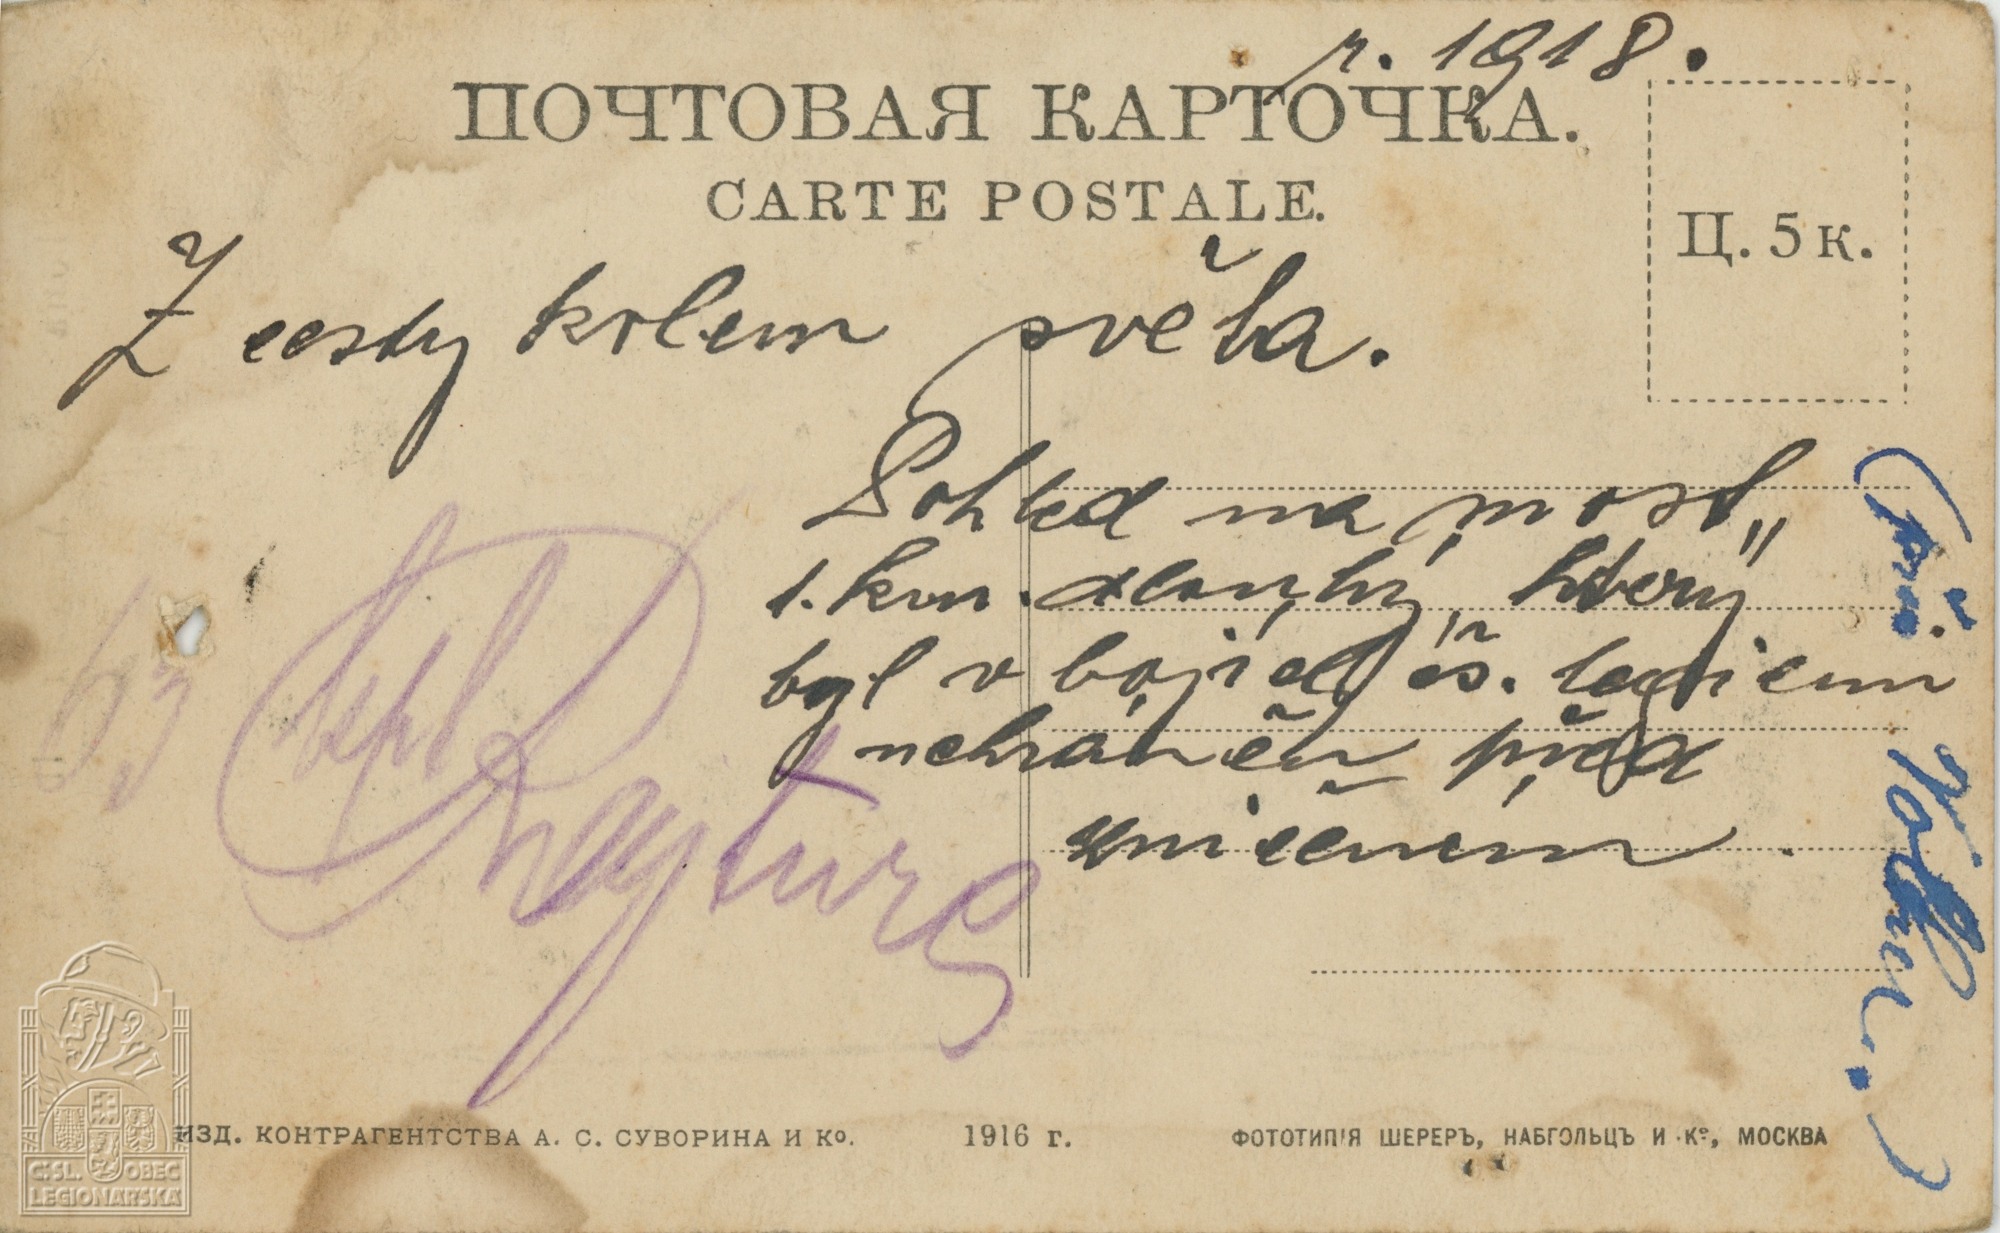 r. 1918.
ПОЧТОВАЯ КАРТОЧКА.
CARTE POSTALE.
Ц. 5 к.
Z cesty kolem světa.
Pohled na most,,
1. km. dlouhý", který
byl v bojích čs. legiemi
uchráněn před
zničením.
(při
)
ИЗД. КОНТРАГЕНТСТВА А. С. СУВОРИНА И Ко.
1916 г.
ФОТОТИПІЯ ШЕРЕРЪ, НАБГОЛЬЦЪ И Ко, МОСКВА
ČSL. OBEC
LEGIONÁŘSKÁ